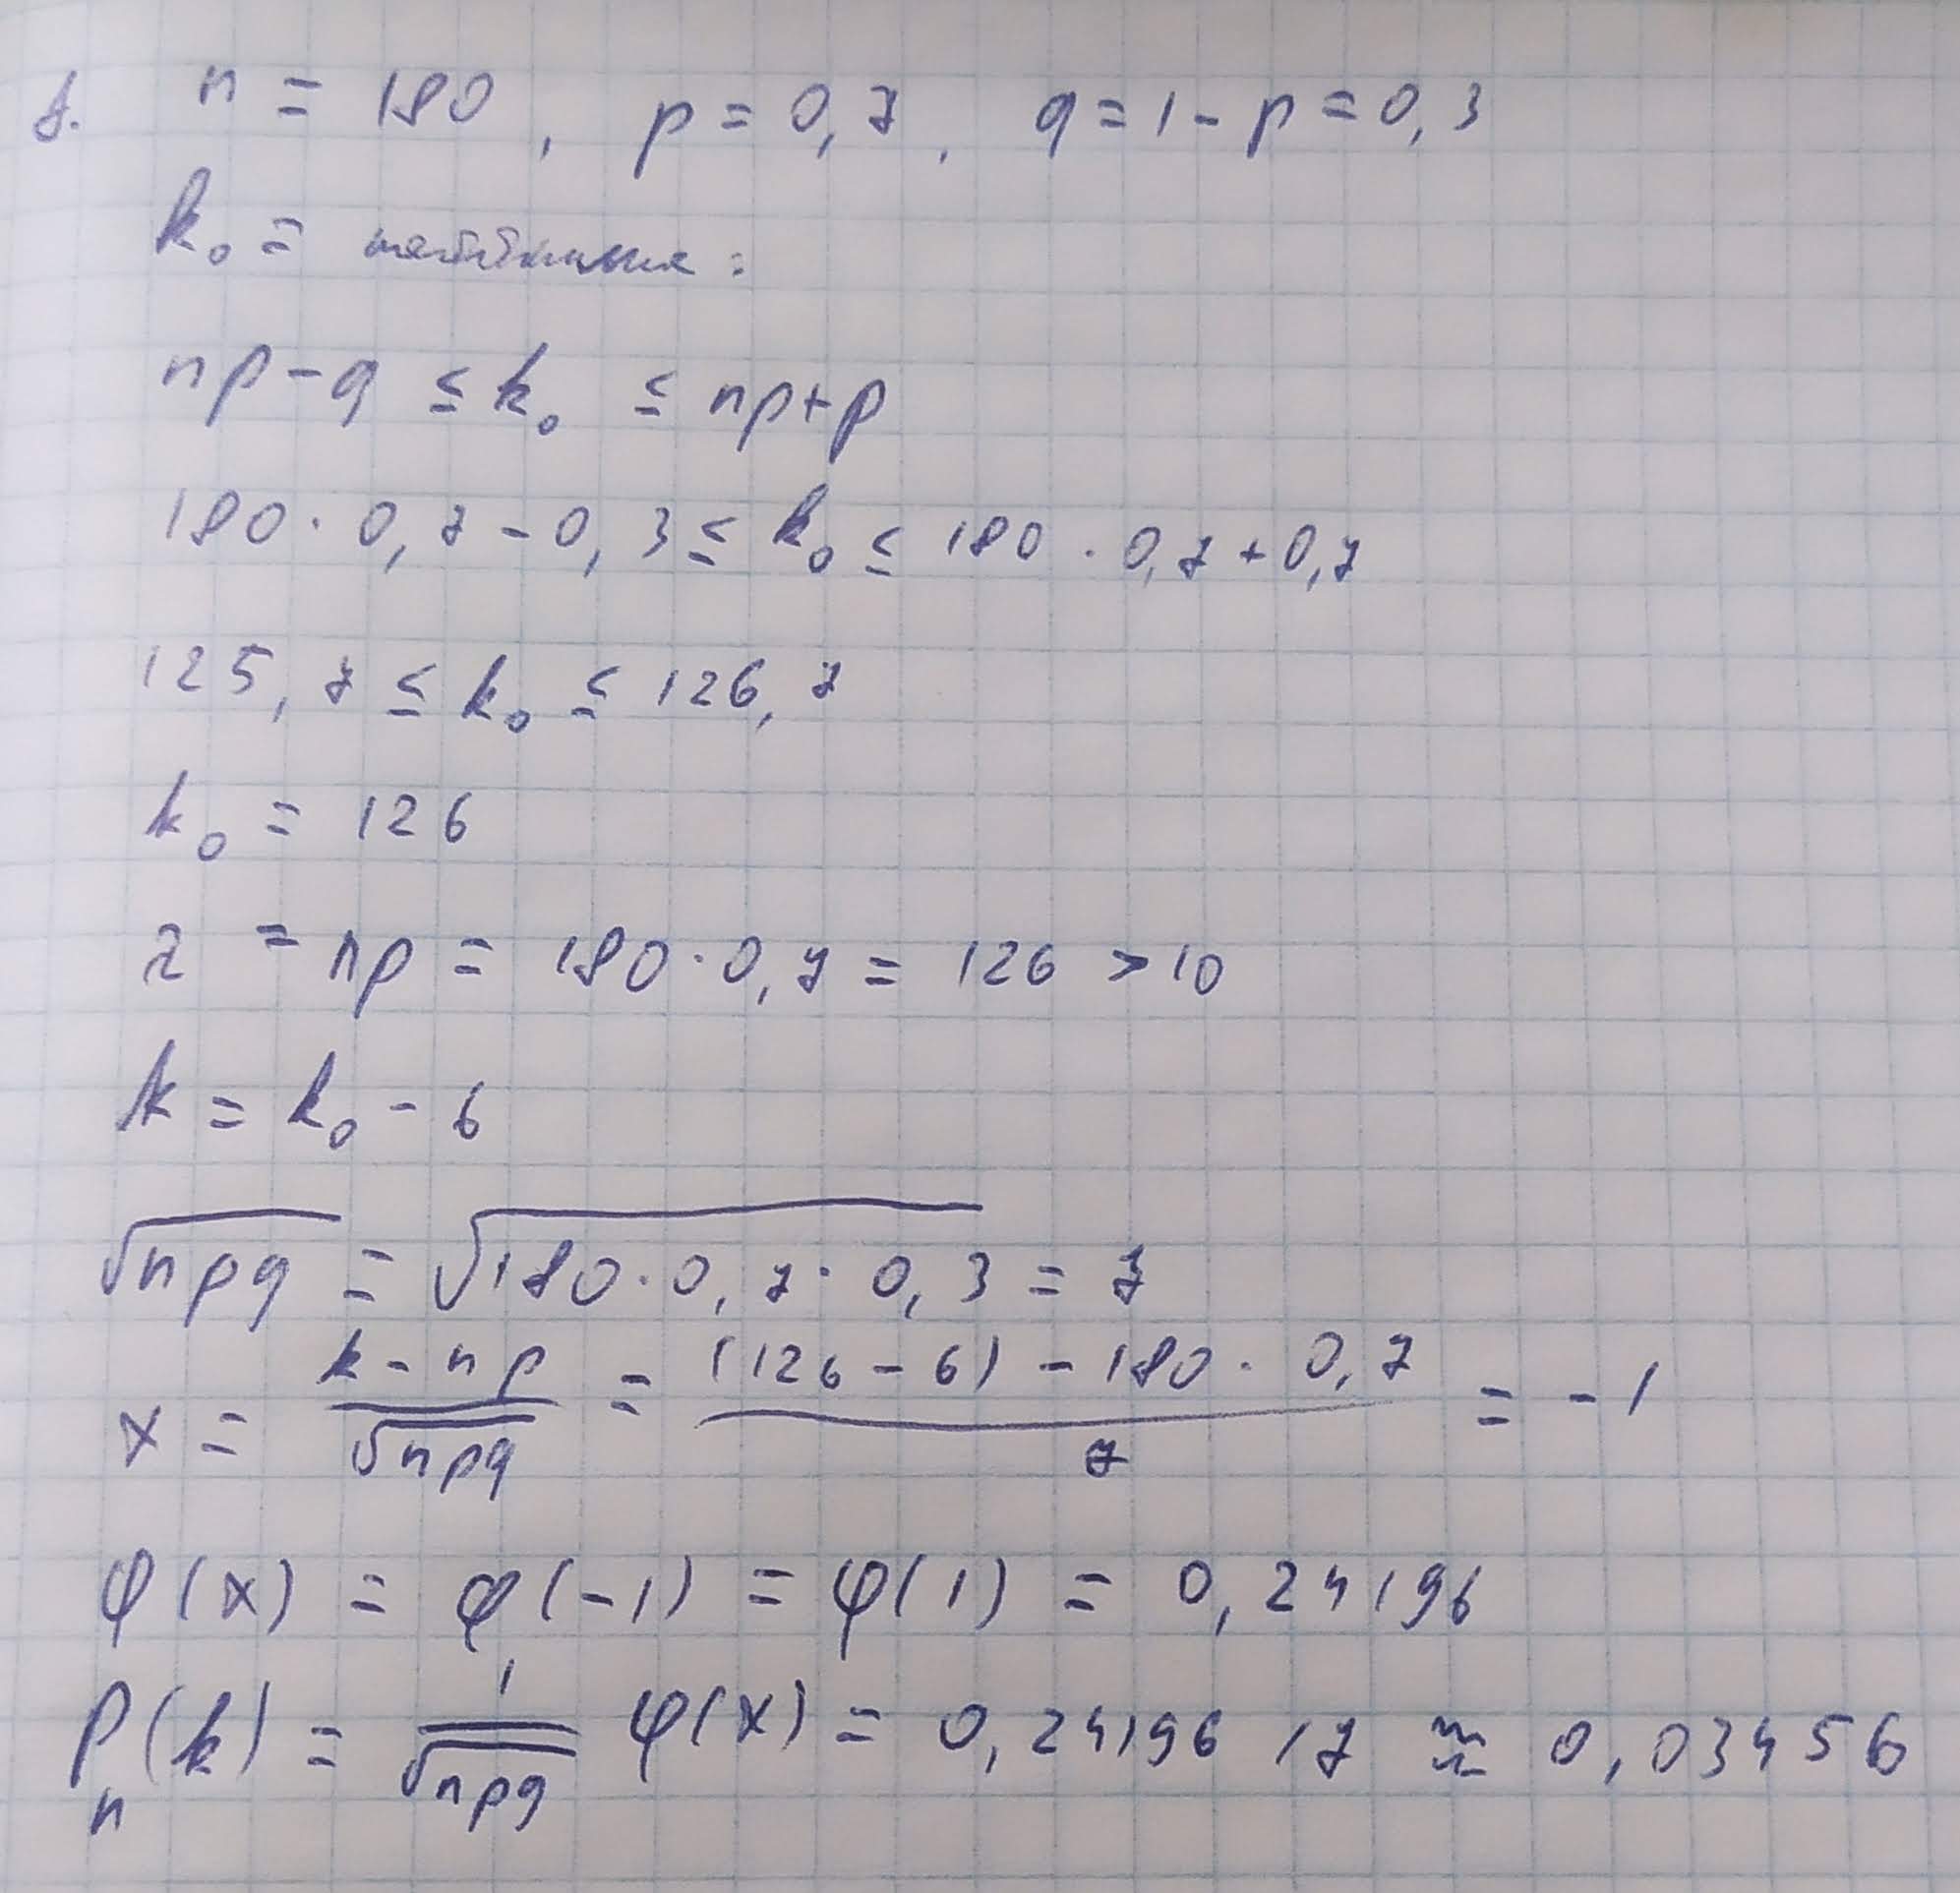 1. n = 180, p = 0,7, q = 1 - p = 0,3
k₀ = :
np - q ≤ k₀ ≤ np + p
180 · 0,7 - 0,3 ≤ k₀ ≤ 180 · 0,7 + 0,7
125,7 ≤ k₀ ≤ 126,7
k₀ = 126
λ = np = 180 · 0,7 = 126 > 10
k = k₀ - 6
√npq = √180 · 0,7 · 0,3 = 7
x = (k - np)/√npq = ((126 - 6) - 180 · 0,7)/7 = -1
φ(x) = φ(-1) = φ(1) = 0,24196
Pₙ(k) = 1/√npq φ(x) = 0,24196 / 7 ≈ 0,03456